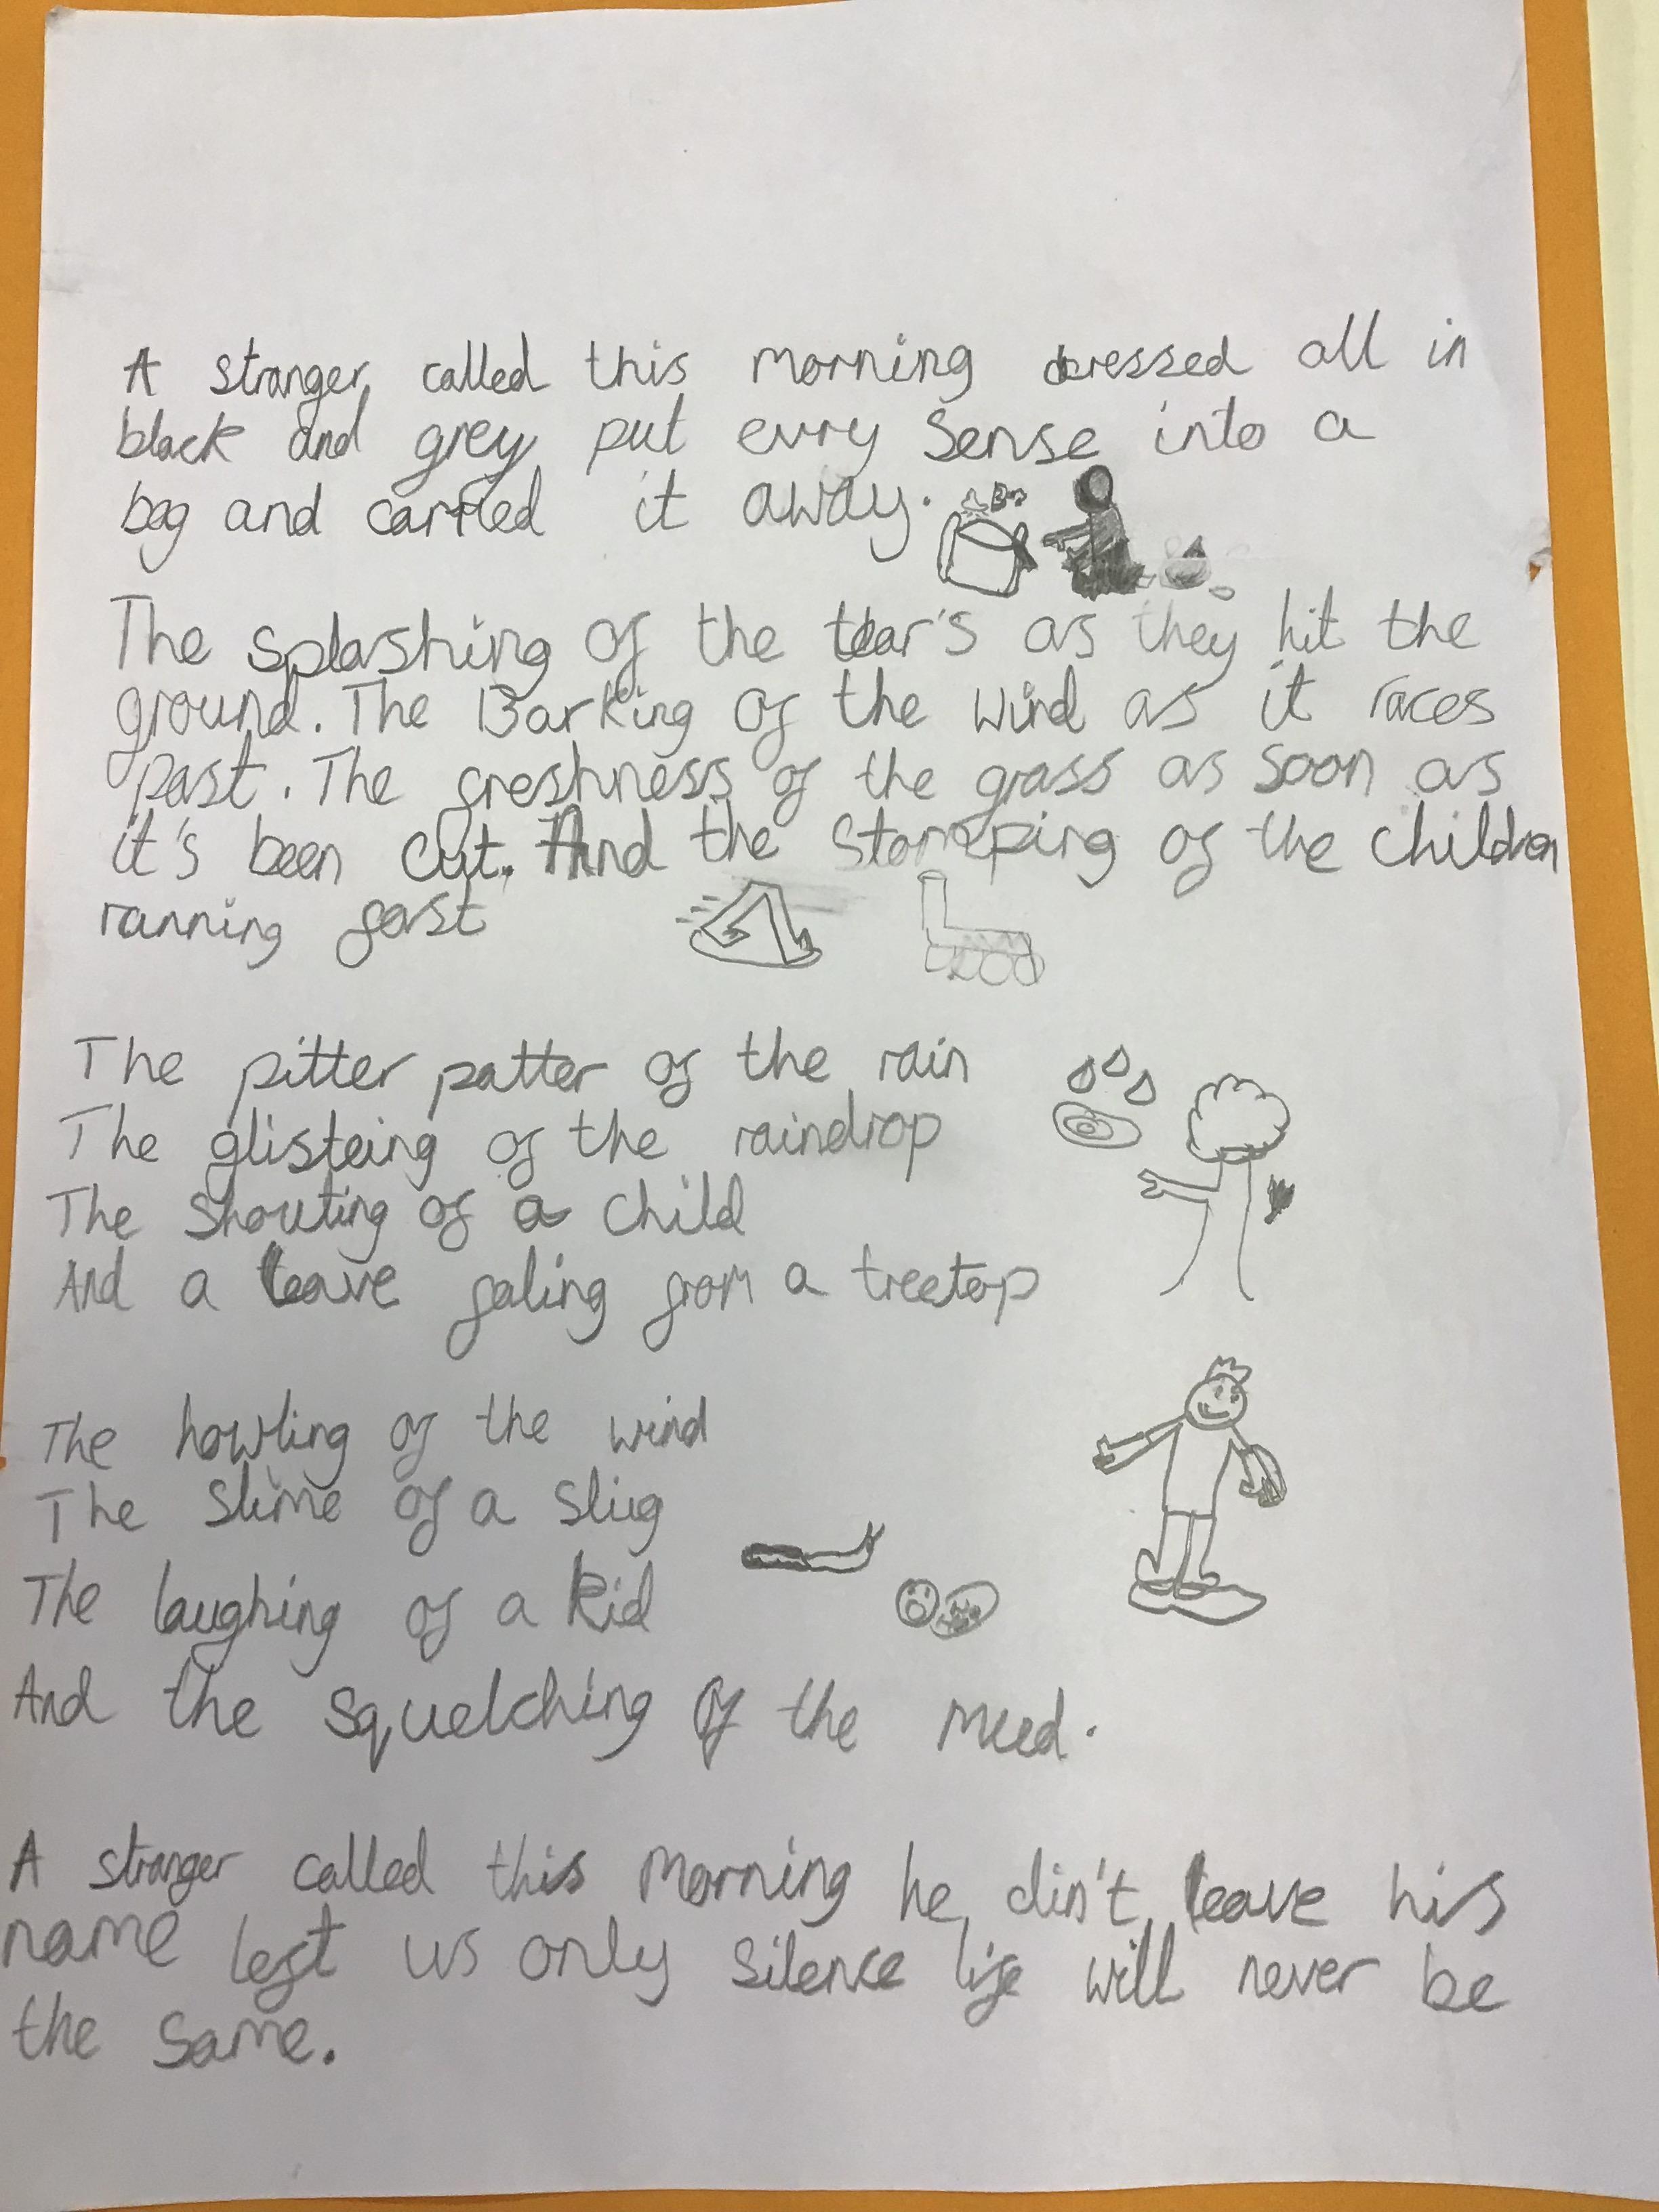 A stranger called this morning dressed all in
black and grey put evry Sense into a
bag and carried it away.
The splashing of the tear's as they hit the
ground. The Barking of the wind as it races
past. The freshness of the grass as soon as
it's been cut. And the Stomping of the children
ranning fast
The pitter patter of the rain
The glisteing of the raindrop
The shouting of a child
And a leave faling from a treetop
The howling of the wind
The Slime of a Slug
The laughing of a kid
And the squelching of the mud.
A stranger called this morning he din't leave his
name left us only silence life will never be
the same.